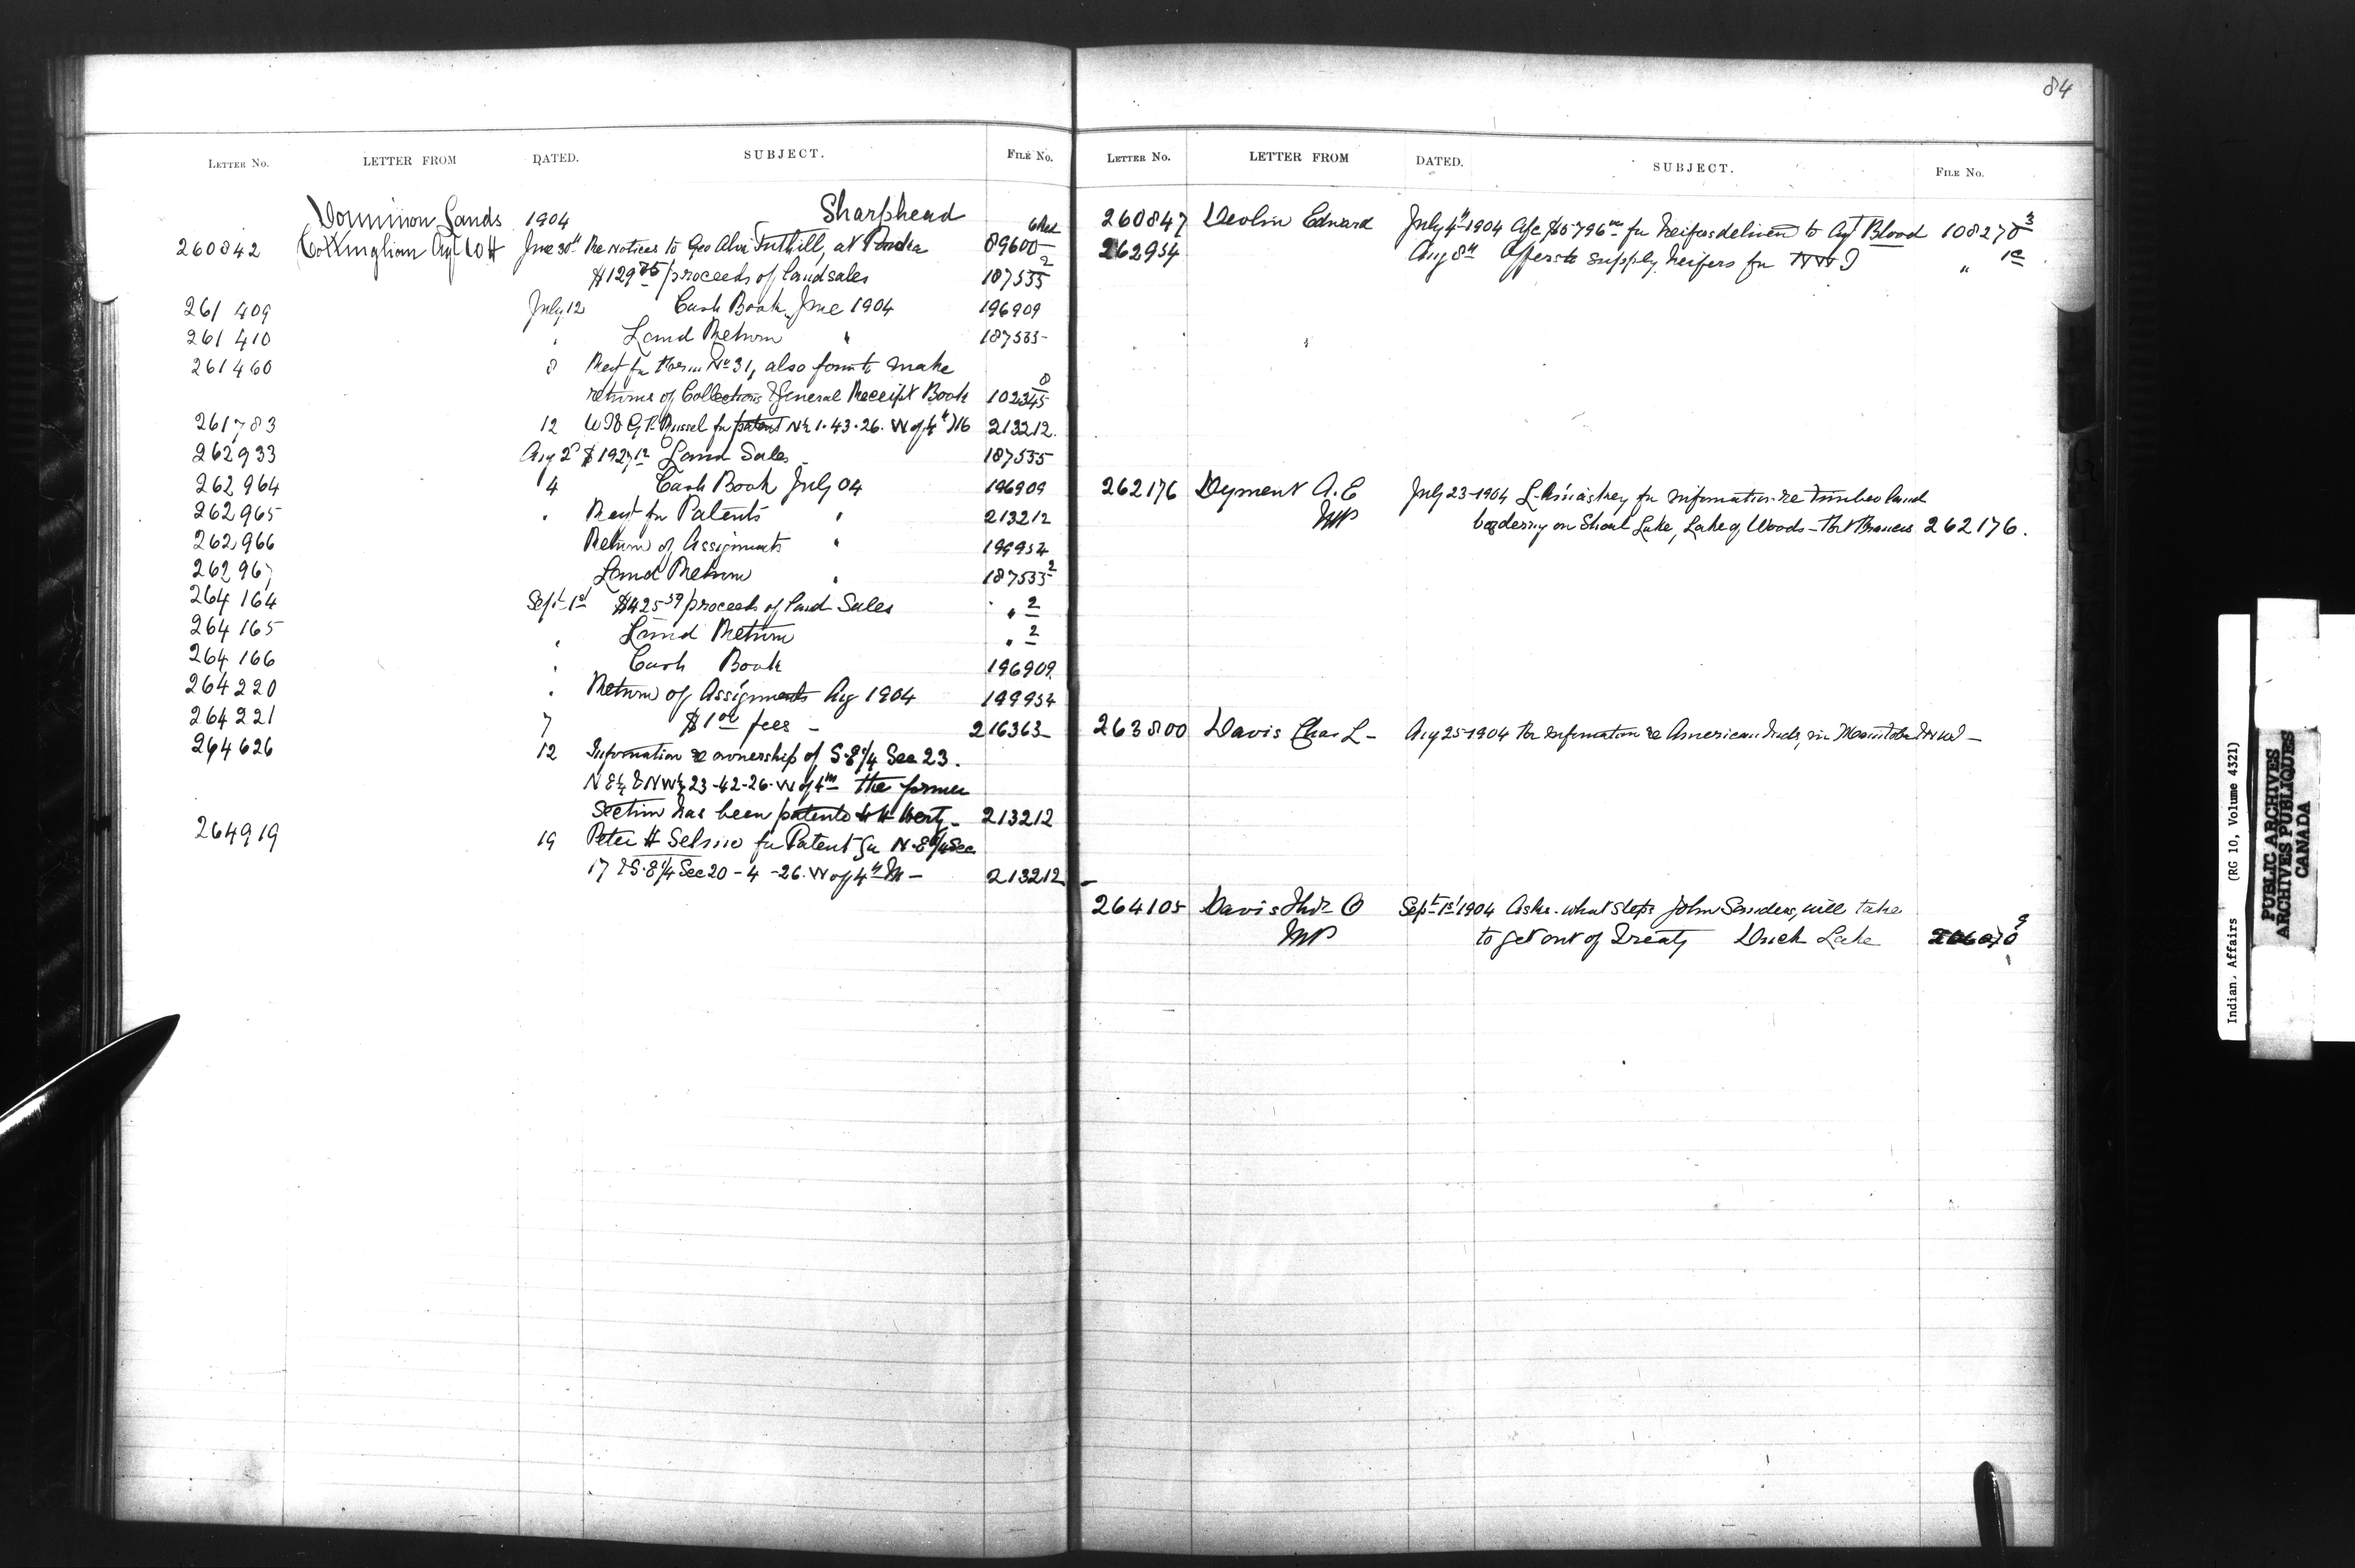 84
LETTER NO. LETTER FROM DATED. SUBJECT. FILE NO.
Dominion Lands 1904 Sharphead
260842 Cottingham Agt W H June 30th Re Notices to Geo Tuthill, at Ponoka 89600
$129 75 proceeds of land sales 187535 2
261 409 July 12 Cash Book June 1904 196909
261 410 " Land Return " 187535
261460 8 Reqt for No 31, also form to make
returns of Collections & General Receipt Book 102345 8
261783 12 G. P. Russel for patent N½ 1.43.26. W of 4th 213212.
262933 Aug 2d Land Sales 187535
262964 4 Cash Book July 04 196909
262965 " Reqt for Patents " 213212
262966 Return of Assignments " 199954
262967 Land Return " 187535 2
264164 Sept 1st $425 59 proceeds of Land Sales " 2
264165 " Land Return " 2
264166 " Cash Book 196909.
264220 " Return of Assignments Aug 1904 199954
264221 7 $1 00 fees - 216363-
264626 12 Information re ownership of S.E¼ Sec 23.
N E¼ & NW¼ 23-42-26. W of 4m the former
Section has been patented 213212
264919 19 Peter H for Patent for N.E¼ Sec
17 & S.E¼ Sec 20 - 4 - 26. W of 4th M - 213212
LETTER NO. LETTER FROM DATED. SUBJECT. FILE NO.
260847 Devlin Edward July 4th 1904 for heifers delivered to Agt Blood 108270 3
262954 Aug 8th Offers to supply heifers for N W T "
262176 Dyment A. E July 23-1904 for information re timber land
MP bordering on Shoal Lake, Lake of Woods - Fort Frances 262176.
263800 Davis Chas L- Aug 25-1904 For information re American Inds, in Manitoba & NW -
264105 Davis Thos O Sept 1st 1904 Asks what steps John Sanders, will take
MP to get out of Treaty Duck Lake
Indian Affairs (RG 10, Volume 4321)
PUBLIC ARCHIVES
ARCHIVES PUBLIQUES
CANADA